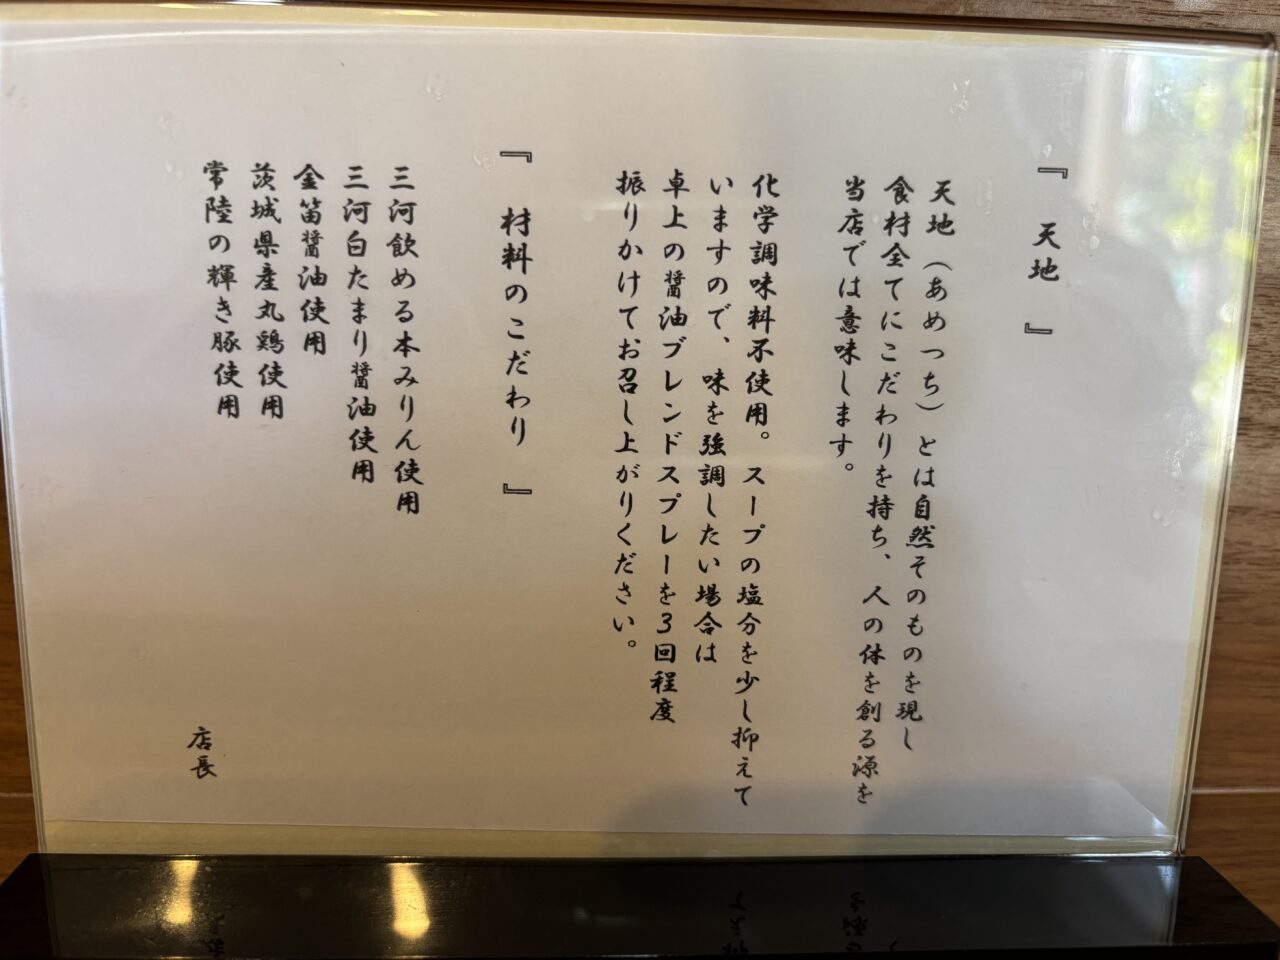 『 天地 』
天地（あめつち）とは自然そのものを現し
食材全てにこだわりを持ち、人の体を創る源を
当店では意味します。
化学調味料不使用。スープの塩分を少し抑えて
いますので、味を強調したい場合は
卓上の醤油ブレンドスプレーを３回程度
振りかけてお召し上がりください。
『 材料のこだわり 』
三河飲める本みりん使用
三河白たまり醤油使用
金笛醤油使用
茨城県産丸鶏使用
常陸の輝き豚使用
店長